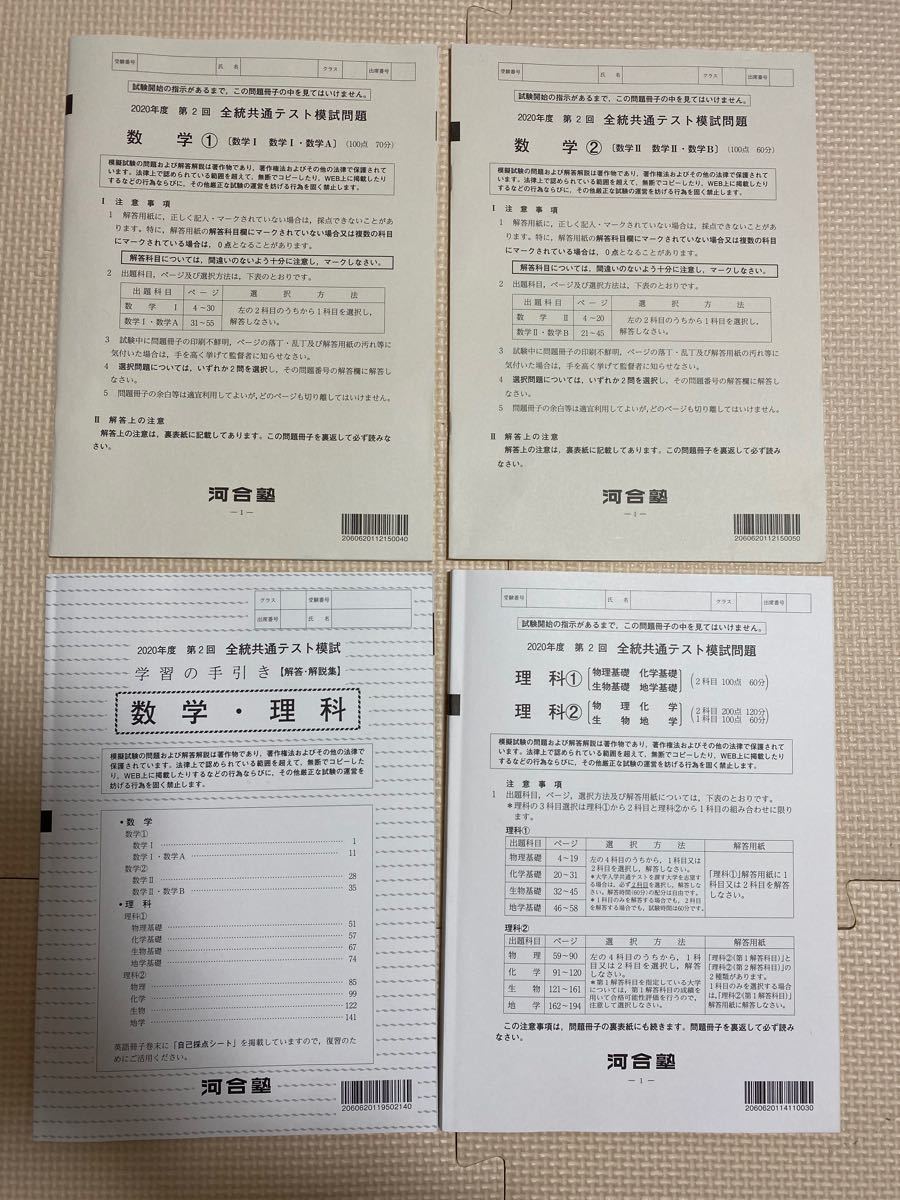 受験番号 氏 名 クラス 出席番号
試験開始の指示があるまで，この問題冊子の中を見てはいけません。
2020年度 第2回 全統共通テスト模試問題
数 学① 〔数学Ⅰ 数学Ⅰ・数学A〕 (100点 70分)
模擬試験の問題および解答解説は著作物であり，著作権法およびその他の法律で保護されて
います。法律上で認められている範囲を超えて，無断でコピーしたり，WEB上に掲載したり
するなどの行為ならびに，その他厳正な試験の運営を妨げる行為を固く禁止します。
Ⅰ 注 意 事 項
1 解答用紙に，正しく記入・マークされていない場合は，採点できないことがあ
ります。特に，解答用紙の解答科目欄にマークされていない場合又は複数の科目
にマークされている場合は，0点となることがあります。
解答科目については，間違いのないよう十分に注意し，マークしなさい。
2 出題科目，ページ及び選択方法は，下表のとおりです。
出 題 科 目 ペ ー ジ 選 択 方 法
数 学 Ⅰ 4～30 左の2科目のうちから1科目を選択し，
数学Ⅰ・数学A 31～55 解答しなさい。
3 試験中に問題冊子の印刷不鮮明，ページの落丁・乱丁及び解答用紙の汚れ等に
気付いた場合は，手を高く挙げて監督者に知らせなさい。
4 選択問題については，いずれか2問を選択し，その問題番号の解答欄に解答し
なさい。
5 問題冊子の余白等は適宜利用してよいが，どのページも切り離してはいけません。
Ⅱ 解答上の注意
解答上の注意は，裏表紙に記載してあります。この問題冊子を裏返して必ず読みな
さい。
河合塾
—1—
2060620112150040
受験番号 氏 名 クラス 出席番号
試験開始の指示があるまで，この問題冊子の中を見てはいけません。
2020年度 第2回 全統共通テスト模試問題
数 学② 〔数学Ⅱ 数学Ⅱ・数学B〕 (100点 60分)
模擬試験の問題および解答解説は著作物であり，著作権法およびその他の法律で保護されて
います。法律上で認められている範囲を超えて，無断でコピーしたり，WEB上に掲載したり
するなどの行為ならびに，その他厳正な試験の運営を妨げる行為を固く禁止します。
Ⅰ 注 意 事 項
1 解答用紙に，正しく記入・マークされていない場合は，採点できないことがあ
ります。特に，解答用紙の解答科目欄にマークされていない場合又は複数の科目
にマークされている場合は，0点となることがあります。
解答科目については，間違いのないよう十分に注意し，マークしなさい。
2 出題科目，ページ及び選択方法は，下表のとおりです。
出 題 科 目 ペ ー ジ 選 択 方 法
数 学 Ⅱ 4～20 左の2科目のうちから1科目を選択し，
数学Ⅱ・数学B 21～45 解答しなさい。
3 試験中に問題冊子の印刷不鮮明，ページの落丁・乱丁及び解答用紙の汚れ等に
気付いた場合は，手を高く挙げて監督者に知らせなさい。
4 選択問題については，いずれか2問を選択し，その問題番号の解答欄に解答し
なさい。
5 問題冊子の余白等は適宜利用してよいが，どのページも切り離してはいけません。
Ⅱ 解答上の注意
解答上の注意は，裏表紙に記載してあります。この問題冊子を裏返して必ず読みな
さい。
河合塾
—1—
2060620112150050
クラス 受験番号
出席番号 氏 名
2020年度 第2回 全統共通テスト模試
学習の手引き【解答・解説集】
数 学 ・ 理 科
模擬試験の問題および解答解説は著作物であり，著作権法およびその他の法律で
保護されています。法律上で認められている範囲を超えて，無断でコピーした
り，WEB上に掲載したりするなどの行為ならびに，その他厳正な試験の運営を
妨げる行為を固く禁止します。
・数 学
数学①
数学Ⅰ 1
数学Ⅰ・数学A 11
数学②
数学Ⅱ 28
数学Ⅱ・数学B 35
・理 科
理科①
物理基礎 51
化学基礎 57
生物基礎 67
地学基礎 74
理科②
物理 85
化学 99
生物 122
地学 141
英語冊子巻末に「自己採点シート」を掲載していますので，復習のた
めにご活用ください。
河合塾
2060620119502140
受験番号 氏 名 クラス 出席番号
試験開始の指示があるまで，この問題冊子の中を見てはいけません。
2020年度 第2回 全統共通テスト模試問題
理 科① 物理基礎 化学基礎 生物基礎 地学基礎 (2科目 100点 60分)
理 科② 物 理 化 学 生 物 地 学 (2科目 200点 120分 1科目 100点 60分)
模擬試験の問題および解答解説は著作物であり，著作権法およびその他の法律で保護されて
います。法律上で認められている範囲を超えて，無断でコピーしたり，WEB上に掲載したり
するなどの行為ならびに，その他厳正な試験の運営を妨げる行為を固く禁止します。
注 意 事 項
1 出題科目，ページ，選択方法及び解答用紙については，下表のとおりです。
＊理科の3科目選択は理科①から2科目と理科②から1科目の組み合わせに限り
ます。
理科①
出題科目 ペ ー ジ 選 択 方 法 解答用紙
物理基礎 4～19
化学基礎 20～31
生物基礎 32～45
地学基礎 46～58
左の4科目のうちから，1科目又は
2科目を選択し，解答しなさい。
＊大学入学共通テストを課す大学を志望す
る場合は，必ず2科目を選択し，解答しな
さい。解答時間(60分)の配分は自由です。
＊1科目のみを解答する場合でも，2科目
を解答する場合でも，試験時間は60分です。
「理科①」解答用紙に1
科目又は2科目を解答
しなさい。
理科②
出題科目 ペ ー ジ 選 択 方 法 解答用紙
物 理 59～90
化 学 91～120
生 物 121～161
地 学 162～194
左の4科目のうちから，1科
目又は2科目を選択し，解答
しなさい。
＊第1解答科目を指定している大学
については，第1解答科目の成績を
用いて合格可能性評価を行うので，
注意して選択しなさい。
「理科②(第1解答科目)」と
「理科②(第2解答科目)」の
2種類があります。
1科目のみを選択する場合
は，「理科②(第1解答科目)」
解答用紙に解答しなさい。
この注意事項は，問題冊子の裏表紙にも続きます。問題冊子を裏返して必ず読み
なさい。
河合塾
—1—
2060620114110030